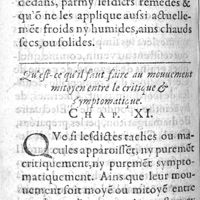 dedans, parmy lesdicts remedes &
qu'õ ne les applique aussi actuelle-
mẽt froids ny humides, ains chauds
secs, ou solides.
Qu'est-ce qu'il faut faire au mouuement
mitoyen entre le critique &
symptomatique.
CHAP. XI.
QVe si lesdictes taches ou ma-
cules apparoissẽt, ny puremẽt
critiquement, ny puremẽt sympto-
matiquement. Ains que leur mou-
uement soit moyẽ ou mitoyẽ entre